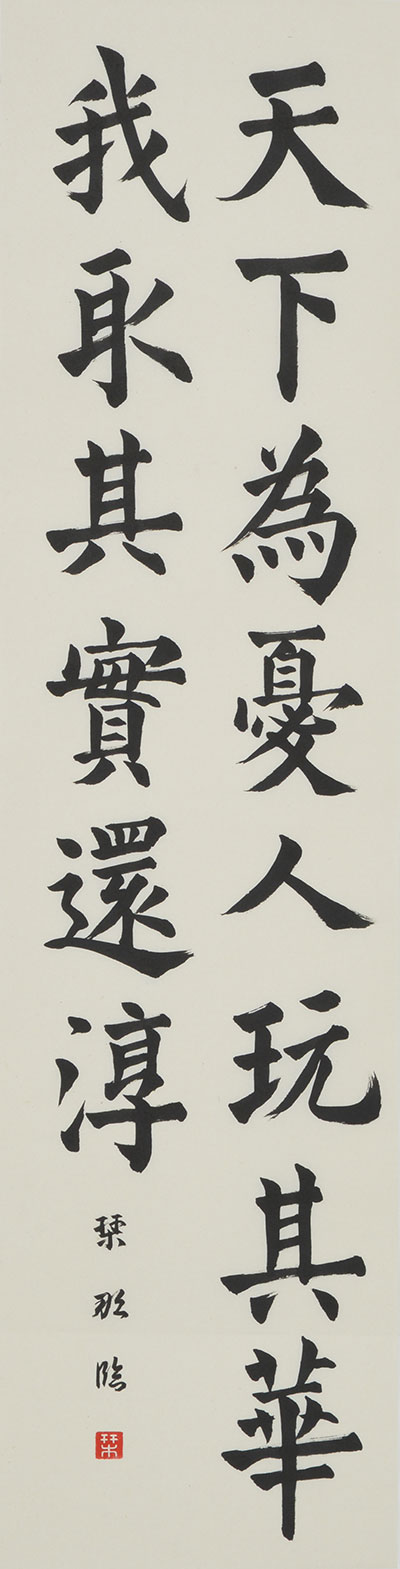 天下為憂人玩其華
我取其實還淳
琹
臨